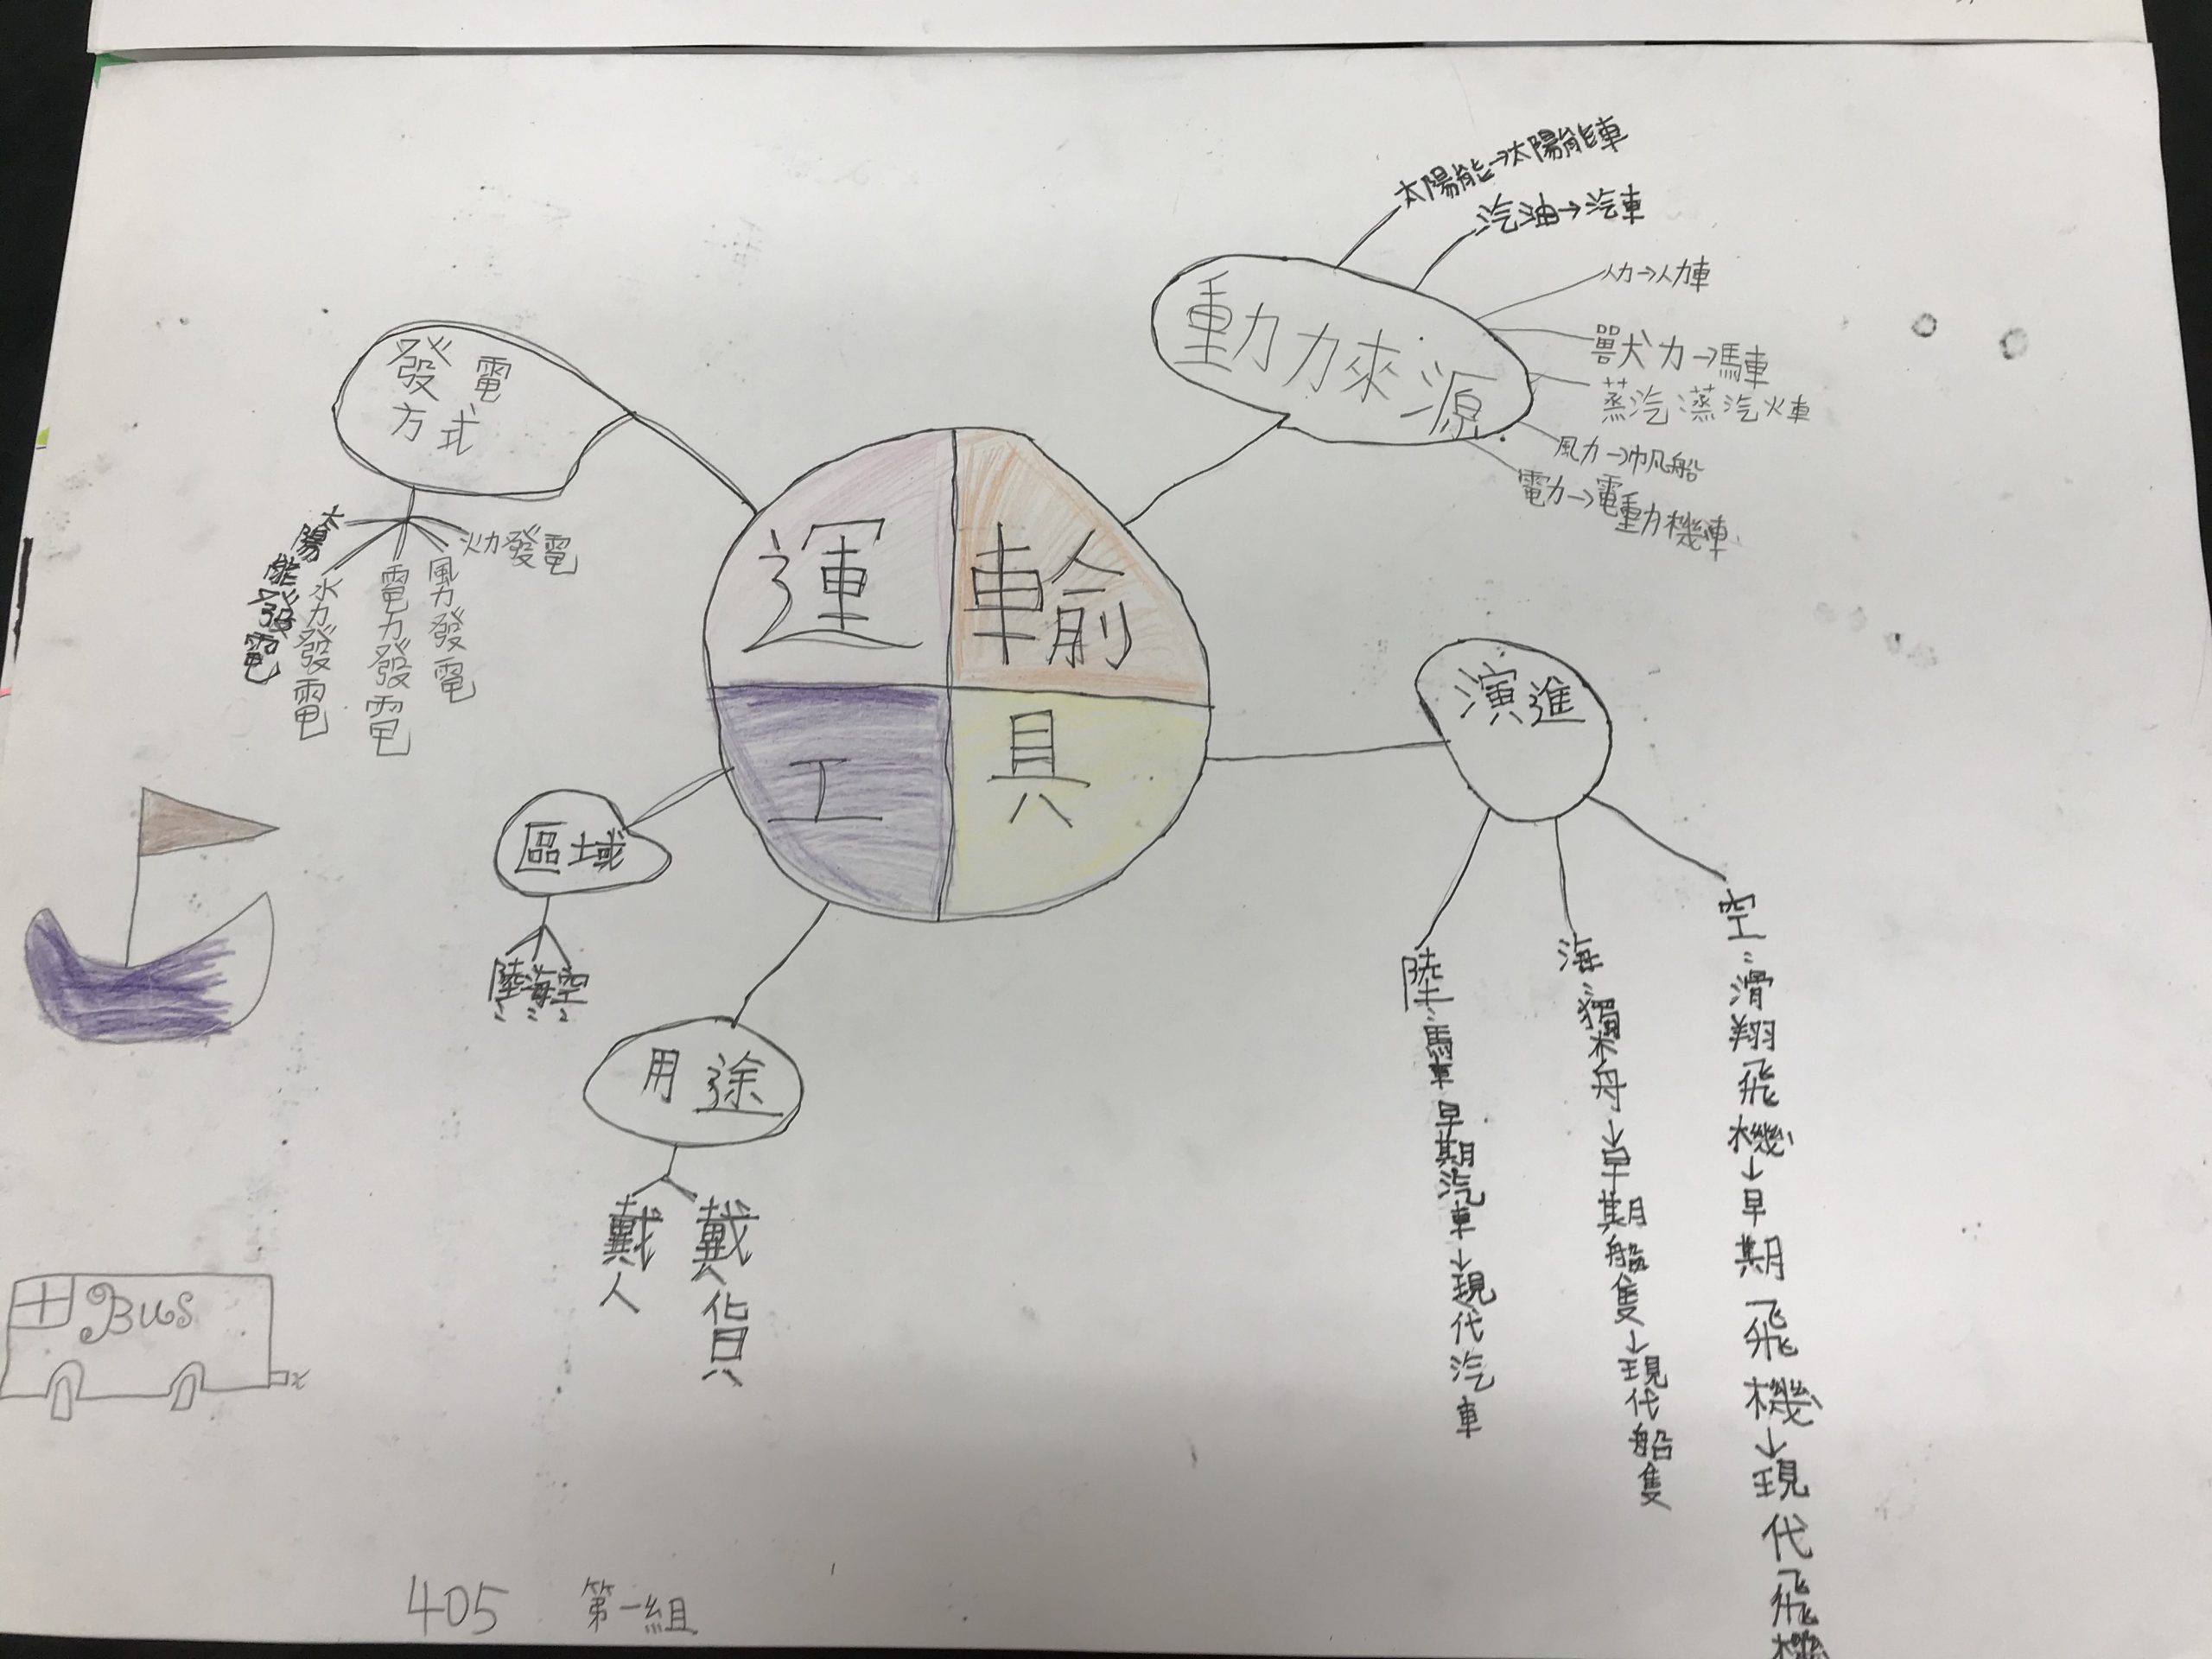 運輸
工具
動力來源
太陽能→太陽能車
汽油→汽車
人力→人力車
獸力→馬車
蒸汽:蒸汽火車
風力→帆船
電力→電動機車
發電
方式
太陽能發電
水力發電
電力發電
風力發電
火力發電
演進
陸:馬車 早期汽車→現代汽車
海:獨木舟→早期船隻→現代船隻
空:滑翔飛機→早期飛機→現代飛機
區域
陸:
海:
空:
用途
戴人
戴貨
Bus
405 第一組